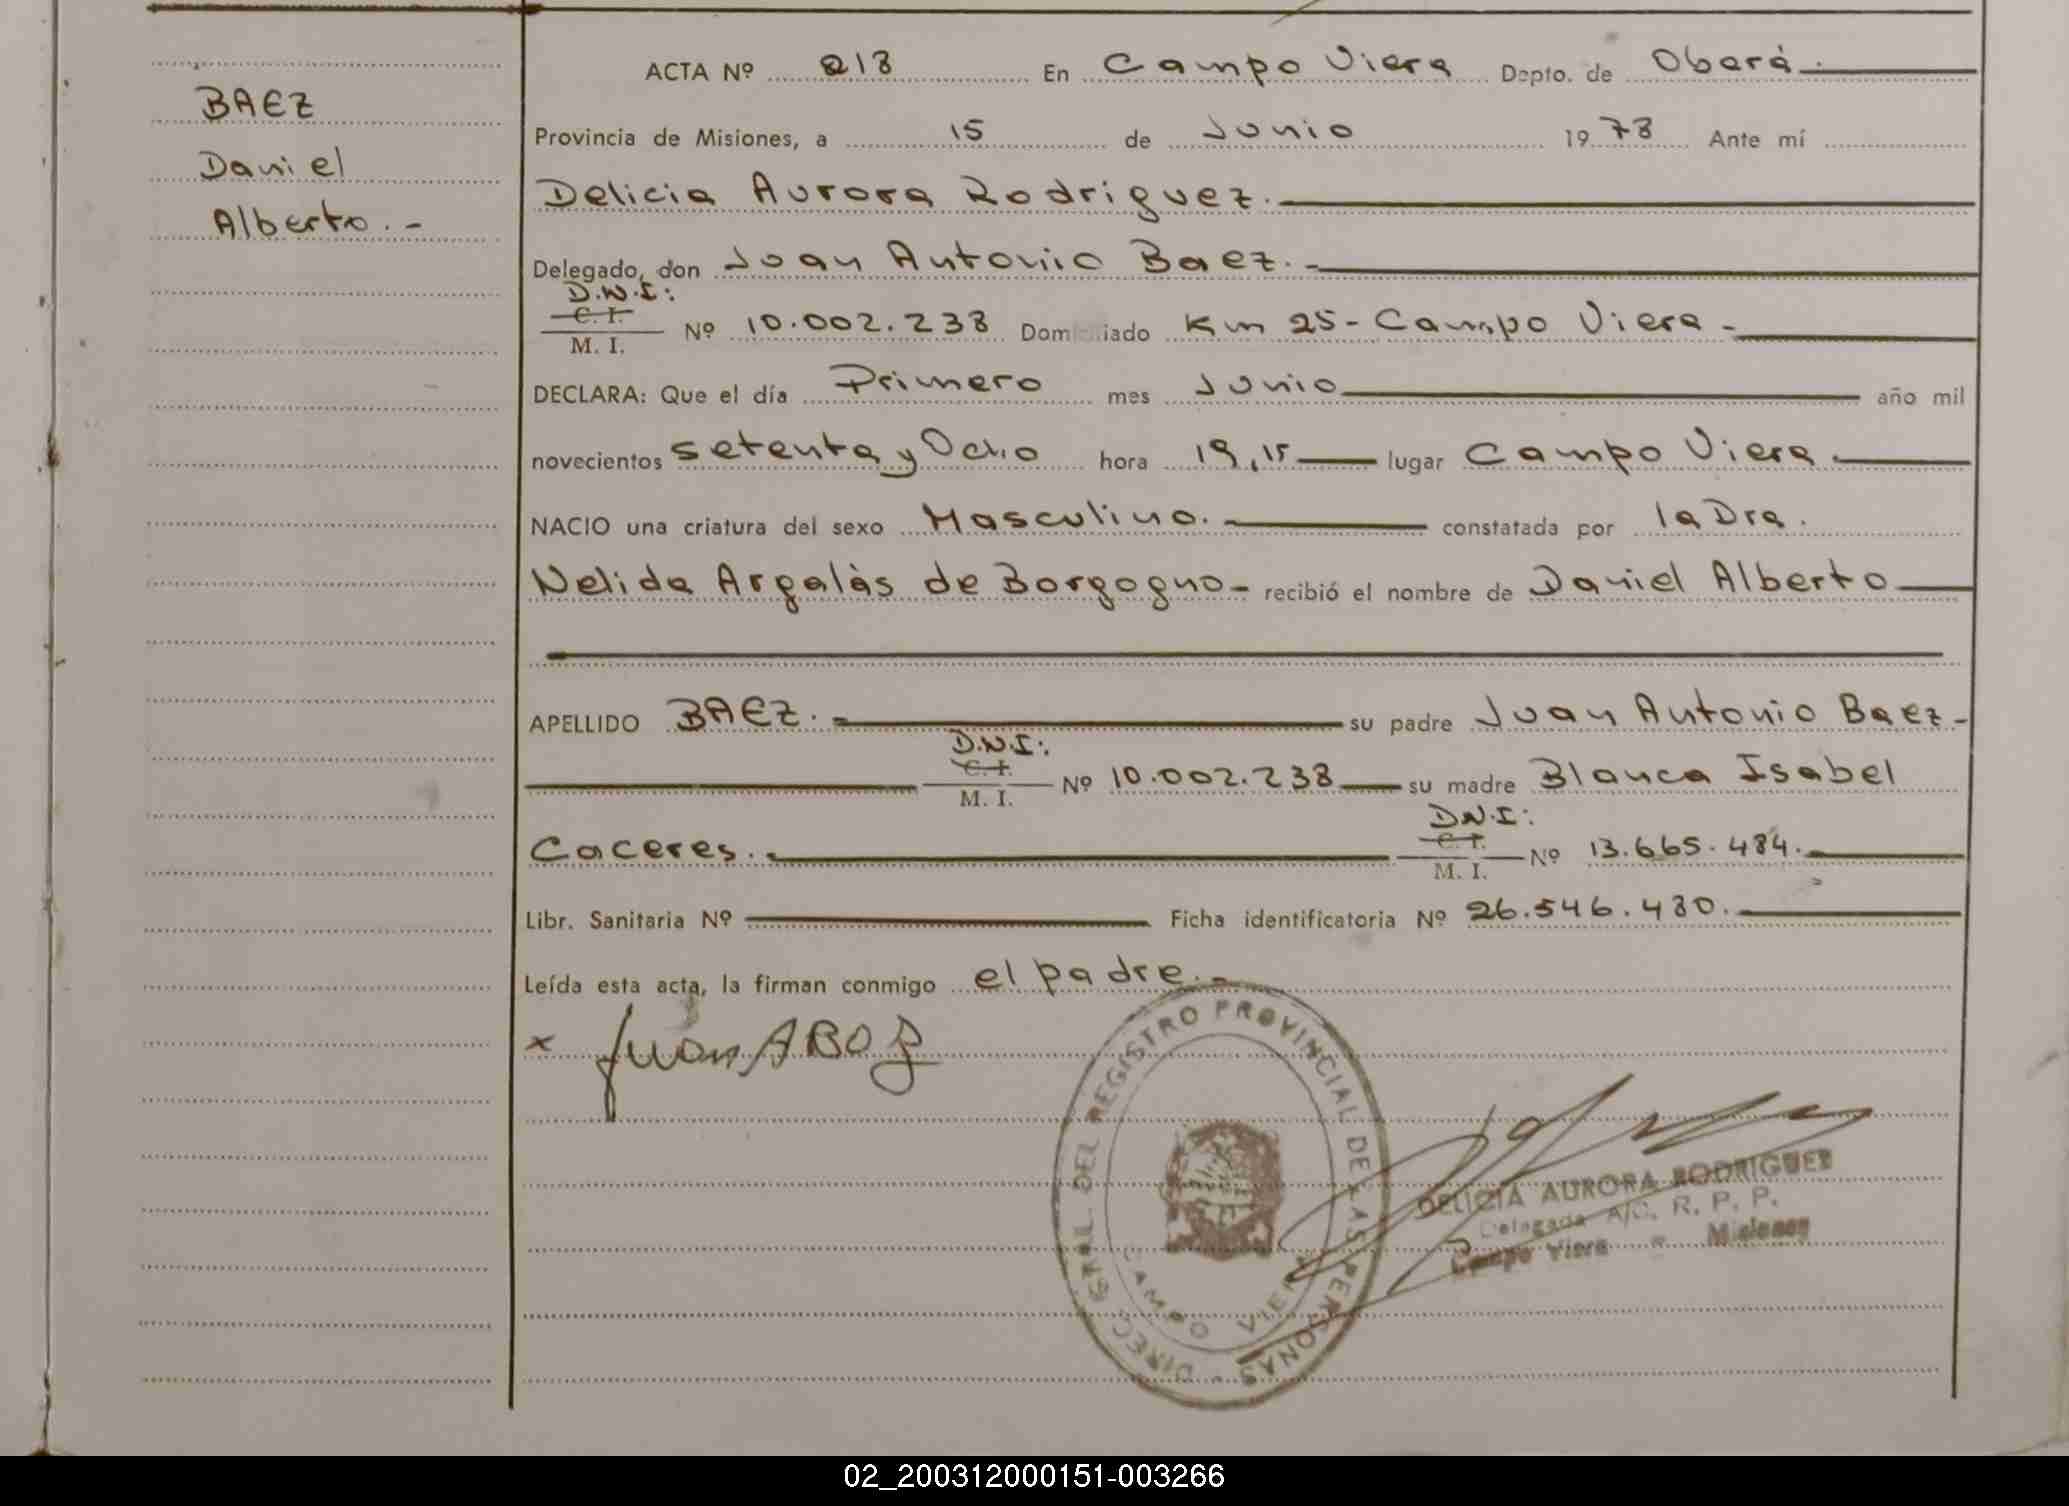 BAEZ
Daniel
Alberto. -
ACTA Nº 218 En Campo Viera Depto. de Oberá.
Provincia de Misiones, a 15 de Junio 1978 Ante mí
Delicia Aurora Rodriguez.
Delegado, don Juan Antonio Baez. -
D.N.I:
C. I.
M. I. Nº 10.002.238 Domiciliado Km 25 - Campo Viera -
DECLARA: Que el día Primero mes Junio año mil
novecientos setenta y Ocho hora 19,15 lugar Campo Viera.
NACIO una criatura del sexo Masculino. constatada por la Dra.
Nelida Argalás de Borgogno - recibió el nombre de Daniel Alberto
APELLIDO BAEZ. su padre Juan Antonio Baez -
D.N.I:
C. I.
M. I. Nº 10.002.238 su madre Blanca Isabel
Caceres. D.N.I:
C. I.
M. I. Nº 13.665.484.
Libr. Sanitaria Nº Ficha identificatoria Nº 26.546.480.
Leída esta acta, la firman conmigo el padre. -
x Juan A BOZ
DIREC. GRAL. DEL REGISTRO PROVINCIAL DE LAS PERSONAS
CAMPO VIERA
DELICIA AURORA RODRIGUEZ
Delegada A/C. R. P. P.
Campo Viera - Misiones
02_200312000151-003266